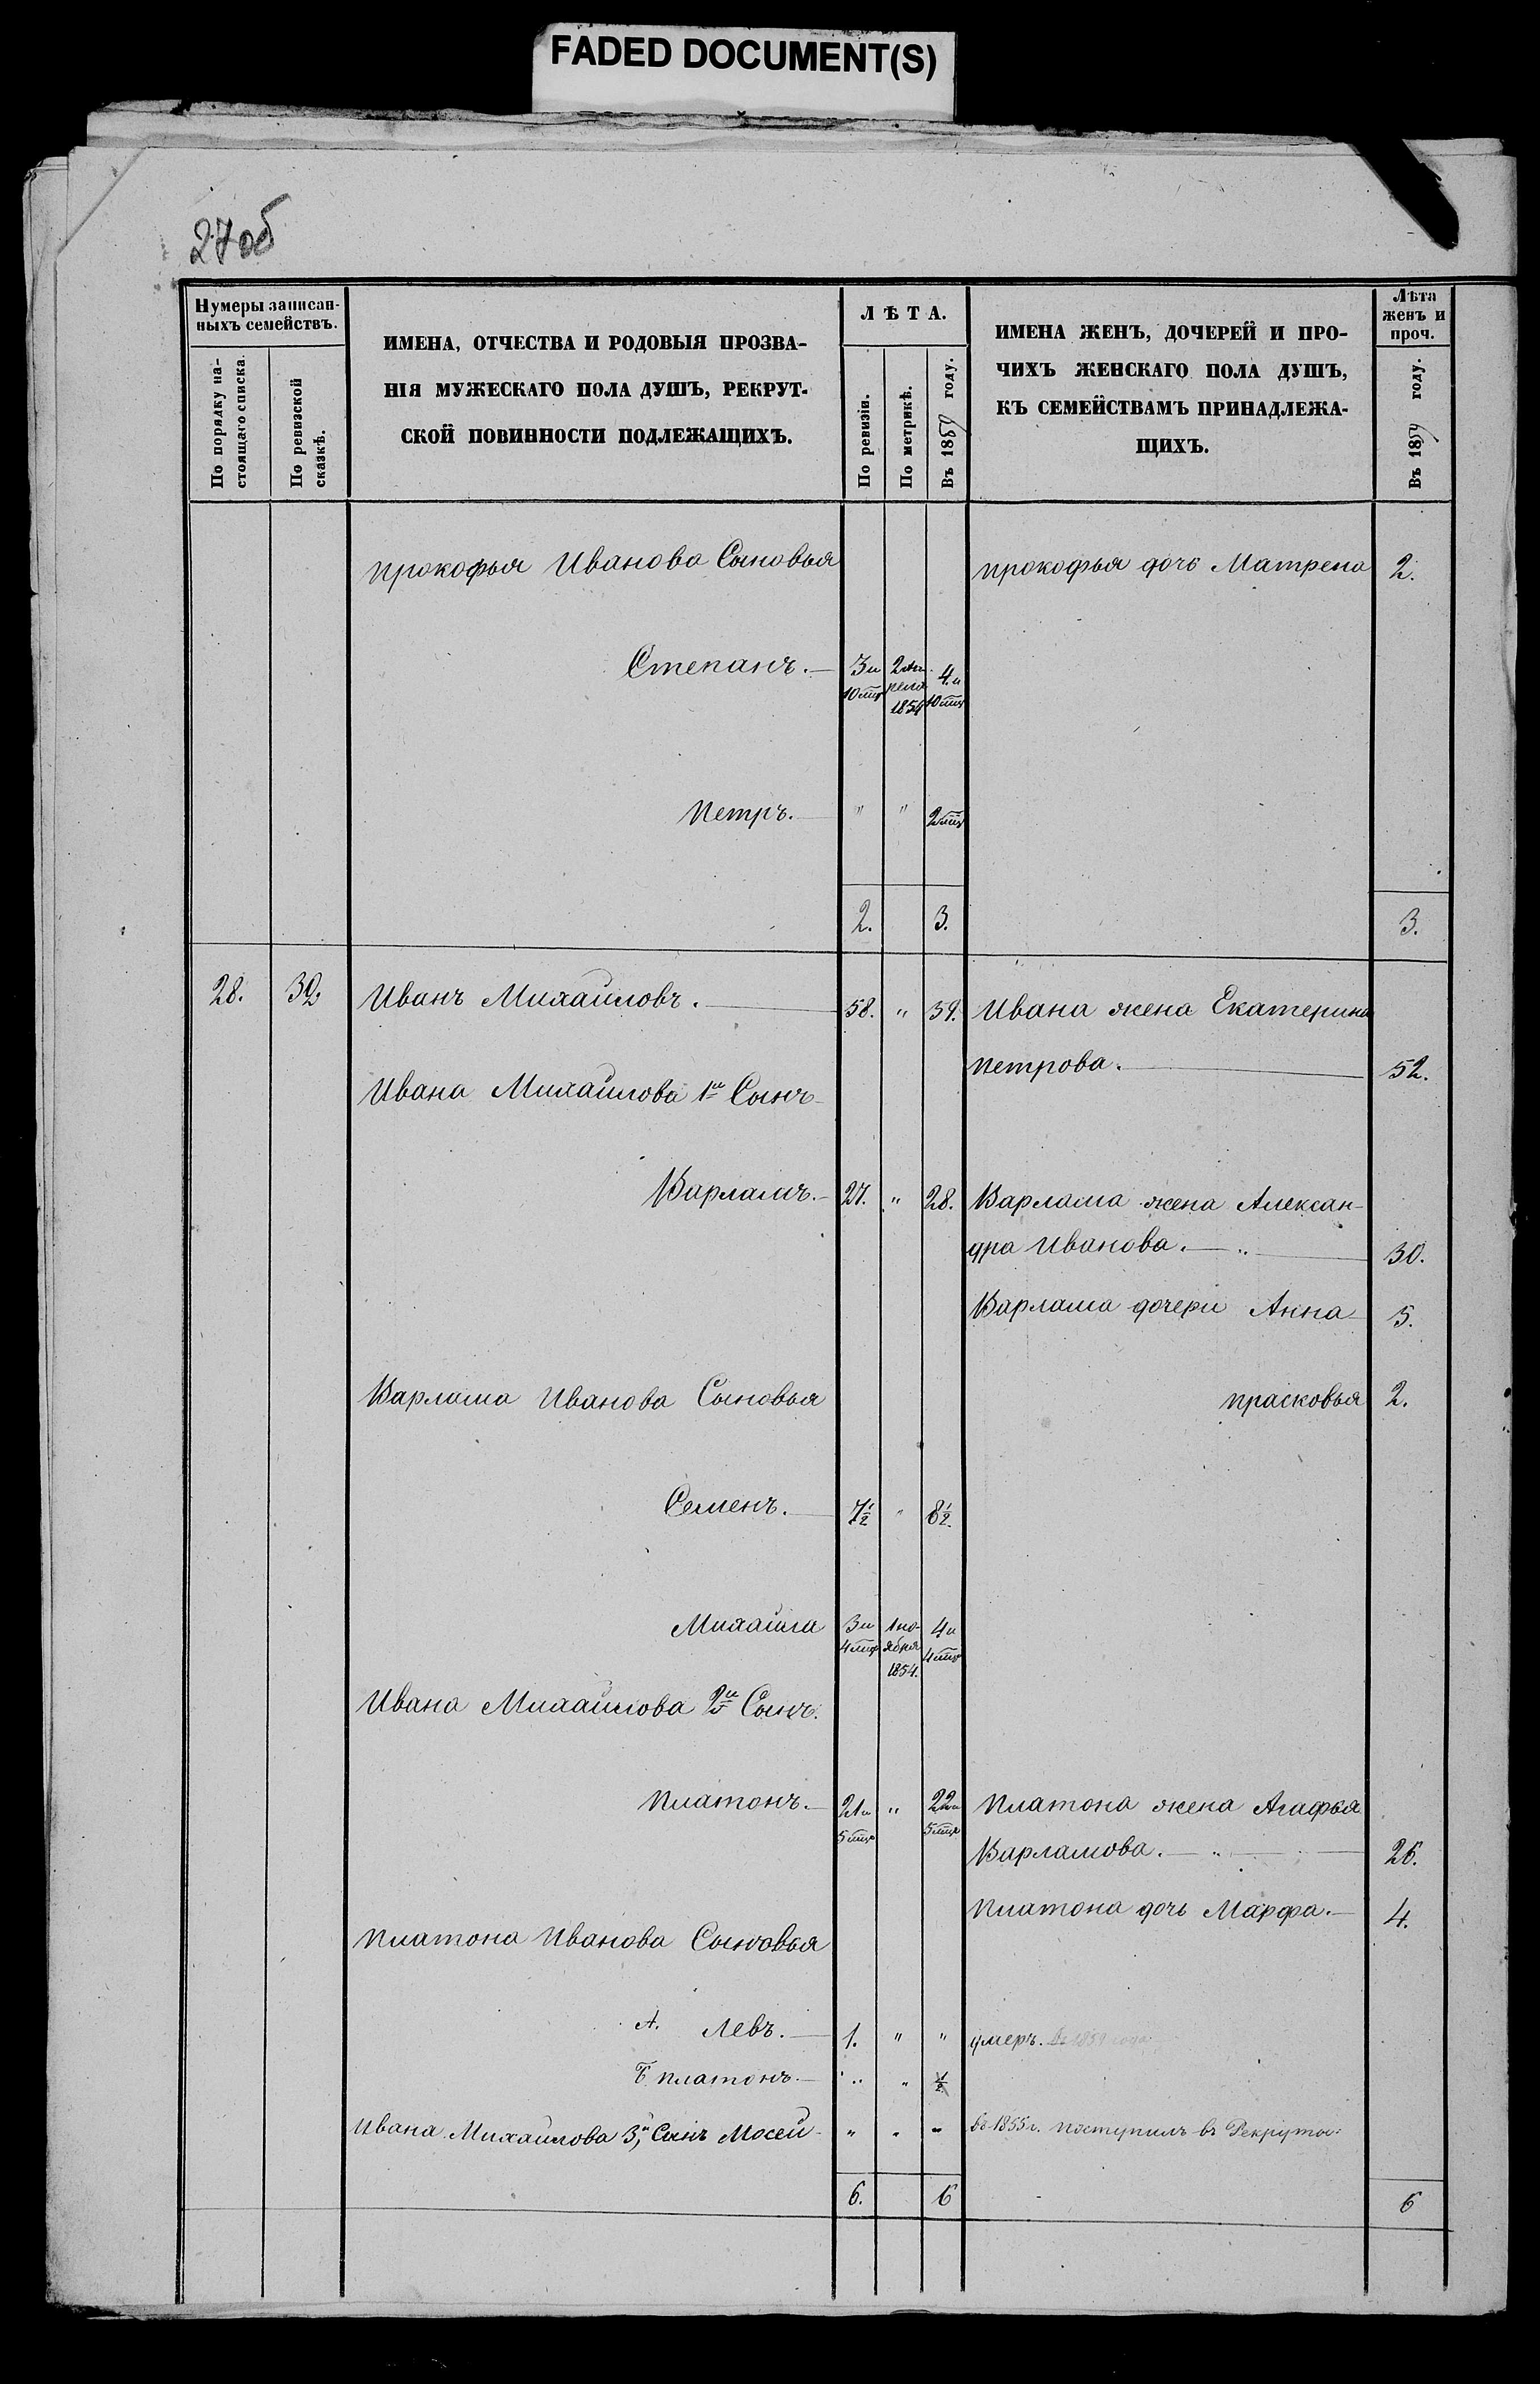 FADED DOCUMENT(S)
27об
Нумеры записан-
ныхъ семействъ.
По порядку на-
стоящаго списка.
По ревизской
сказкѣ.
ИМЕНА, ОТЧЕСТВА И РОДОВЫЯ ПРОЗВА-
НІЯ МУЖЕСКАГО ПОЛА ДУШЪ, РЕКРУТ-
СКОЙ ПОВИННОСТИ ПОДЛЕЖАЩИХЪ.
ЛѢТА.
По ревизіи.
По метрикѣ.
Въ 1859 году.
ИМЕНА ЖЕНЪ, ДОЧЕРЕЙ И ПРО-
ЧИХЪ ЖЕНСКАГО ПОЛА ДУШЪ,
КЪ СЕМЕЙСТВАМЪ ПРИНАДЛЕЖА-
ЩИХЪ.
Лѣта
женъ и
проч.
Въ 1859 году.
прокофья Иванова Сыновья
прокофья дочь Матрена 2.
Степанъ. 3 и 10 мцв 2 Ап-реля 1854 4. и 10 мцв
петръ. " " 2 мцв
2. 3. 3.
28. 32 Иванъ Михайловъ. 58. " 59. Ивана жена Екатерина
петрова. 52.
Ивана Михайлова 1й Сынъ
Варламъ. 27. " 28. Варлама жена Алексан-
дра Иванова. " 30.
Варлама дочери Анна 5.
Варлама Иванова Сыновья прасковья 2.
Семенъ. 7½ " 8½.
Михайла 3 и 4 мцв 1 но-ября 1854. 4 и 4 мцв
Ивана Михайлова 2й Сынъ.
платонъ. 21 и 5 мцв " 22 и 5 мцв платона жена Агафья
Варламова. " 26.
платона дочь Марфа. 4.
платона Иванова Сыновья
А. Левъ. 1. " " умеръ. Въ 1859 года
Б. платонъ. " " ½
Ивана Михайлова 3й Сынъ Мосей " " " въ 1855 г. поступилъ въ Рекруты.
6. 6 6